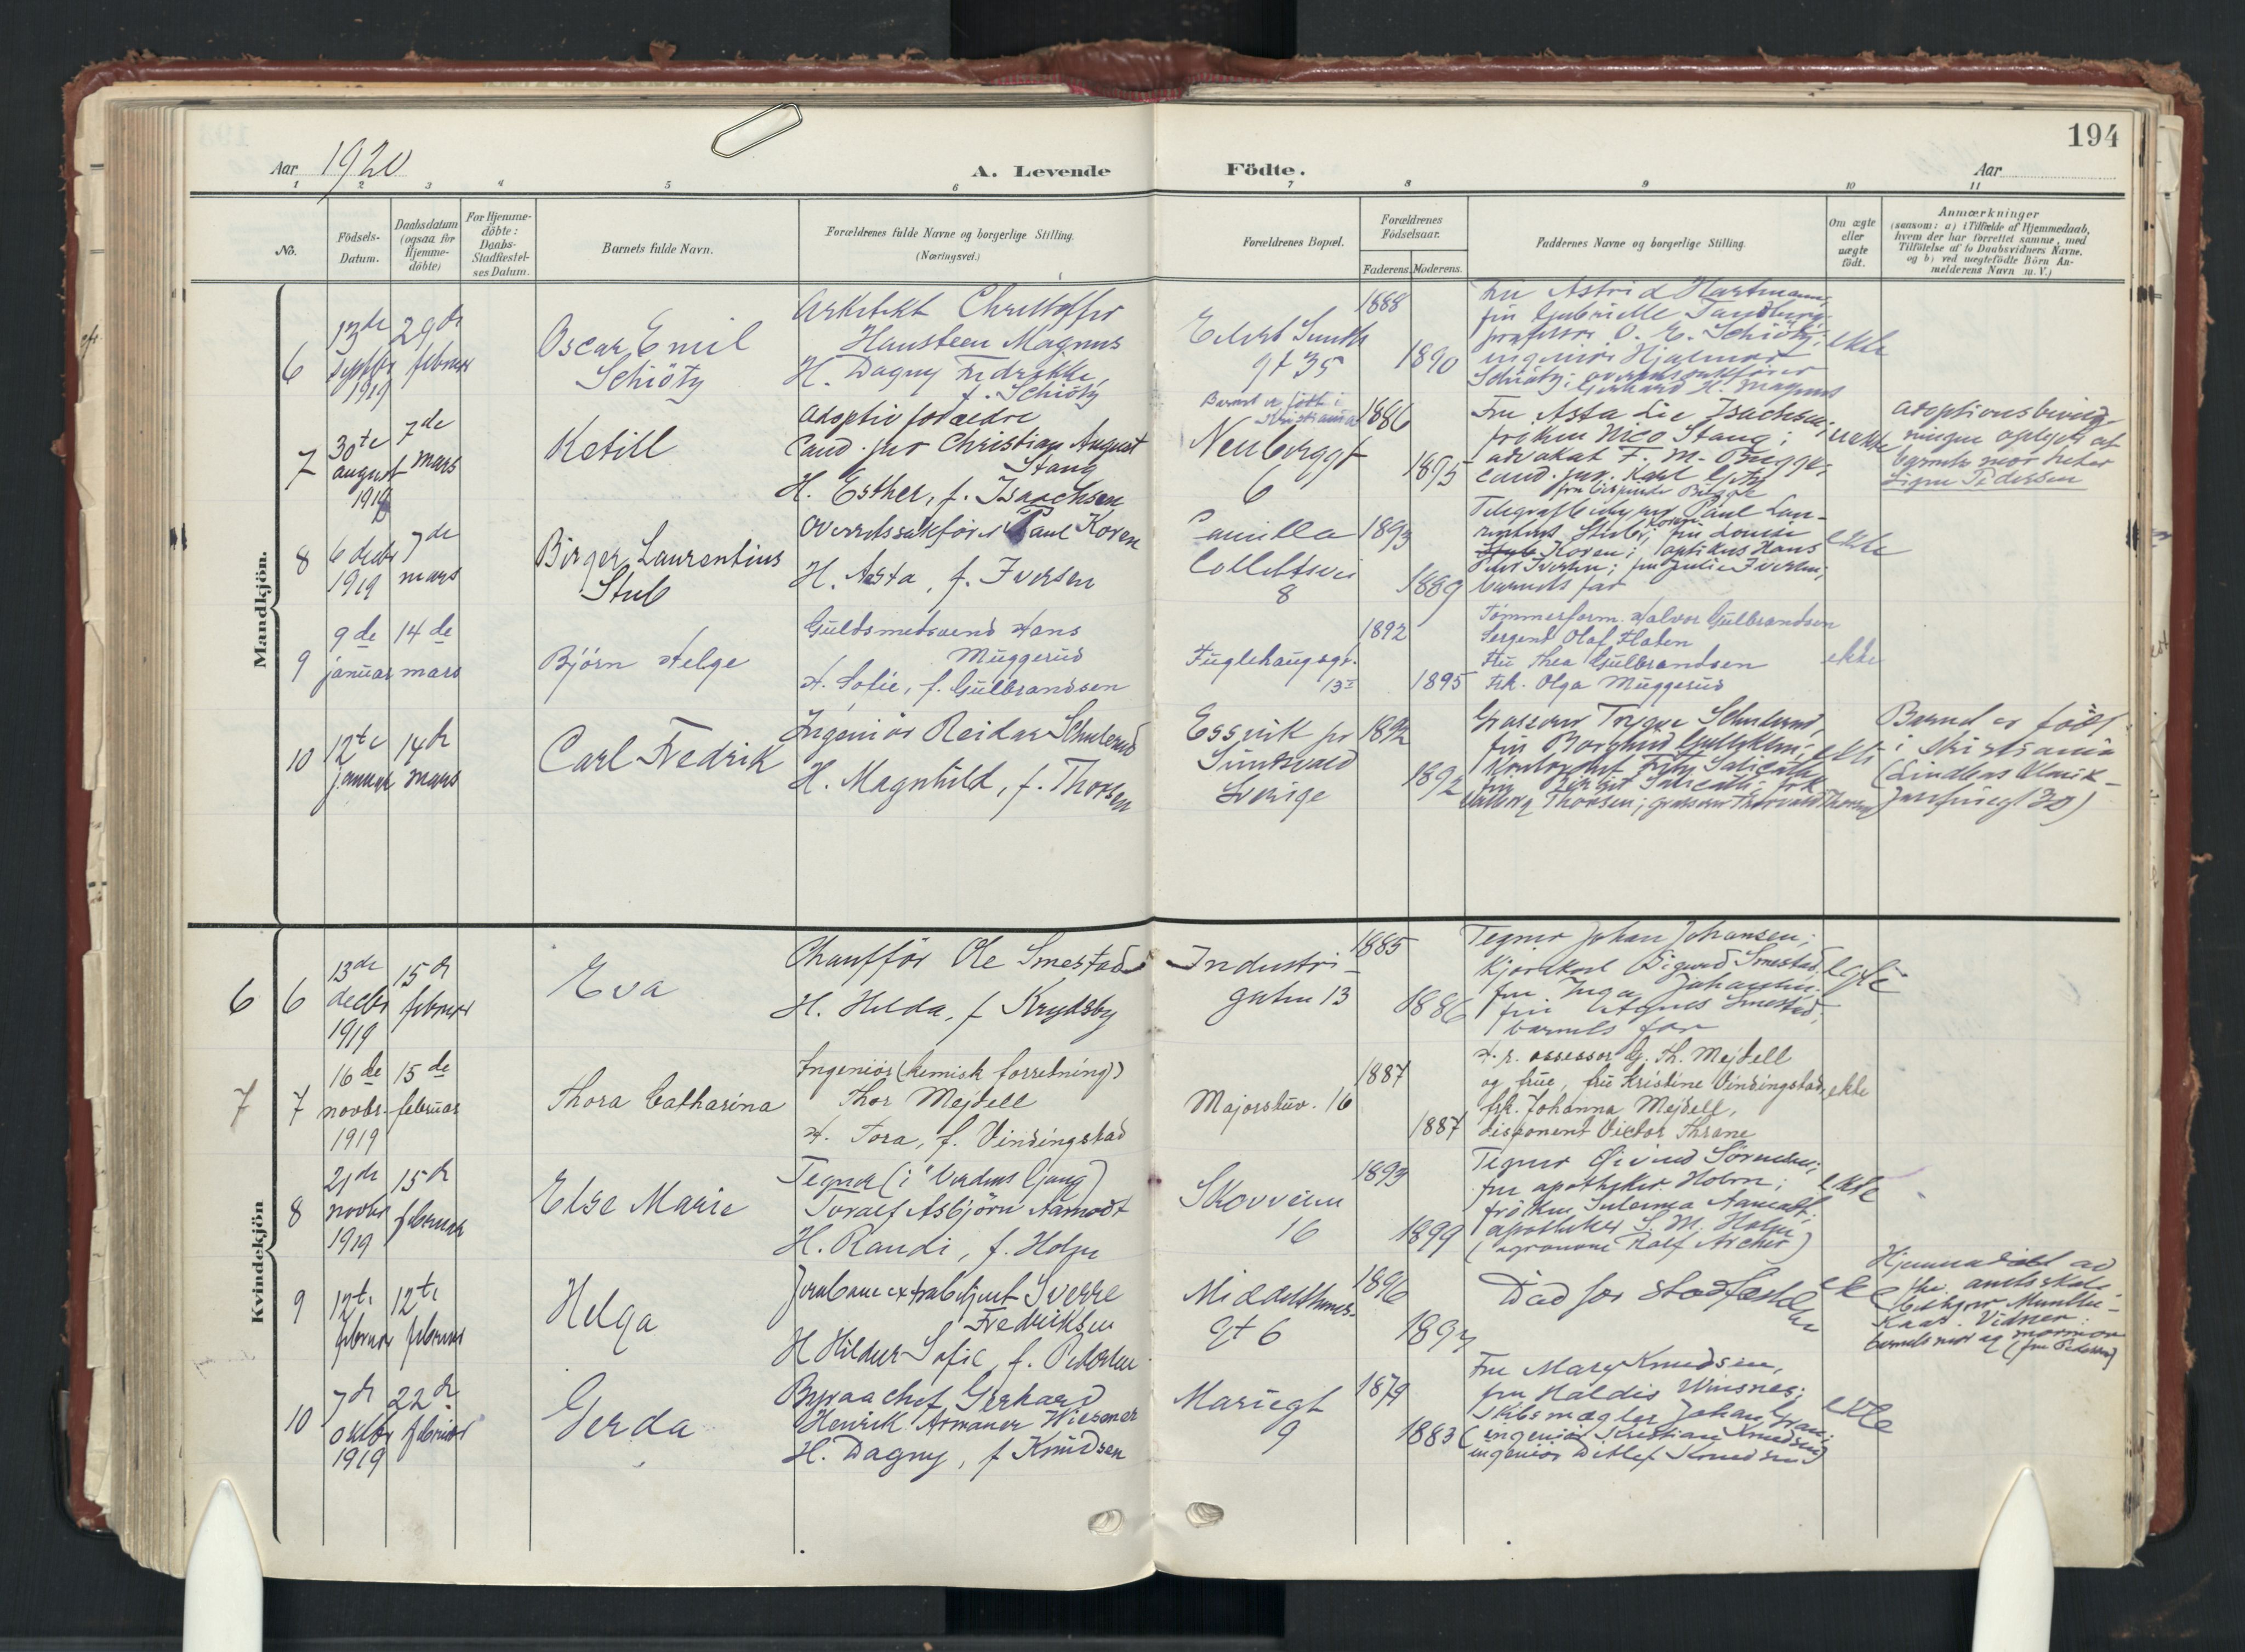 194
Aar 1920
A. Levende
Födte.
Aar
1 2 3 4 5 6 7 8 9 10 11
No.
Födsels-
Datum.
Daabsdatum
(ogsaa for
Hjemme-
döbte)
For Hjemme-
döbte:
Daabs-
Stadfæstel-
ses Datum.
Barnets fulde Navn.
Forældrenes fulde Navne og borgerlige Stilling.
(Næringsvei.)
Forældrenes Bopæl.
Forældrenes
Födselsaar.
Faderens. Moderens.
Faddernes Navne og borgerlige Stilling.
Om ægte
eller
uægte
födt.
Anmærkninger
(saasom: a) i Tilfælde af Hjemmedaab,
hvem der har forrettet samme, med
Tilföielse af to Daabsvidners Navne,
og b) ved uægtefödte Börn An-
melderens Navn m. V.)
Mandkjön.
6
13de
septbr
1919
29de
februar
Oscar Emil
Schiötz
Arkitekt Christoffer
Hansteen Magnus
H. Dagny Fredrikke,
f. Schiötz
Eilert Sundts
gt 35
1888
1890
Fru Astrid Hartmann,
fru Gabrielle Sandberg,
professor O. E. Schiötz;
ingeniör Hjalmar
Schiötz; overretssakförer
Gerhard H. Magnus
ekte
7
30te
august
1918
7de
mars
Ketill
Adoptiv forældre
Cand. jur Christian August
Stang
H. Esther, f. Isaachsen
Barnet er født i
Kristiania
Neuberggt
6
1886
1895
Fru Asta Lie Isachsen;
fröken Nico Stang;
advokat F. M. Bugge;
cand. jur. Karl
uekte
adoptionsbevilg-
ningen oplyst at
barnets mor heter
Signe Pedersen
8
6 decbr
1919
7de
mars
Birger Laurentius
Stub
Overretssakförer Paul Koren
H. Aasta, f. Iversen
Camilla
Collettsvei
8
1893
1889
Telegrafbestyrer Paul Lau-
rentius Stub; fru Louise
Koren; optikus Hans
Peter Iversen; fru Julie Iversen;
barnets far
ekte
9
9de
januar
14de
mars
Björn Helge
Guldsmedsvend Hans
Muggerud
H. Sofie, f. Gulbrandsen
Fuglehauggt.
13 I
1892
1895
Tömmerform. Halvor Gulbrandsen
Sergent Olaf Flaten
Fru Thea Gulbrandsen
Frk. Olga Muggerud
ekte
10
12te
januar
14de
mars
Carl Fredrik
Ingeniör Reidar Schulerud
H. Magnhild, f. Thorsen
Essvik pr
Sundsvald
Sverige
1892
1892
Grosserer Trygve Schulerud,
fru Borghild
Fritz Salicath
fru Birgit Salicath; frk
Valborg Thorsen; grosserer Thorvald Thorsen
ekte
Barnet er född
i Kristiania
(Lindboes Klinik
Josefinegt 30)
Kvindekjön
6 6
13de
decbr
1919
15de
februar
Eva
Chaufför Ole Smestad
H. Hilda, f Krydsby
Industri-
gaten 13
1885
1886
Tegner Johan Johansen;
Kjörekarl Sigurd Smestad;
fru Inga Johansen;
fru Agnes Smestad;
barnets far
egte
7 7
16de
novbr.
1919
15de
februar
Thora Catharina
Ingeniör (kemisk forretning)
Thor Mejdell
H. Tora, f. Vindingstad
Majorstuv. 16
1887
1887
H. r. assessor G. Th. Mejdell
og frue, fru Kristine Vindingstad,
frk. Johanna Mejdell,
disponent Victor Thrane
ekte
8
21de
novbr
1919
15de
februar
Else Marie
Tegner (i Verdens Gang)
Toralf Asbjörn Aamodt
H. Randi, f. Holm
Skovveien
16
1893
1899
Tegner Öivind Sörensen;
fru apotheker Holm;
fröken Sulemma Aamodt;
apotheker S. M. Holm
(agronom Ralf Archer)
ekte
9
12te
februar
12te
februar
Helga
Jernbaneextrabetjent Sverre
Fredriksen
H Hildur Sofie, f. Pedersen
Middelthuns-
gt 6
1896
1893
Död för stadfæstelsen
ekte
Hjemmedöbt av
Kaas. Vidner:
barnets mor og mormor
(fru Pedersen)
10
7de
oktbr
1919
22de
februar
Gerda
Byraachef Gerhard
Henrik Armauer Wiesener
H. Dagny, f Knudsen
Mariegt
9
1879
1883
Fru Mary Knudsen,
fru Haldis Winsnes;
Skibsmægler Johan Gran;
(ingeniör Kristian Knudsen)
ingeniör Ditlef Knudsen
ekte